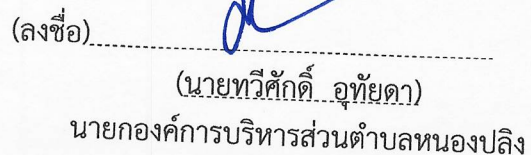 (ลงชื่อ)
(นายทวีศักดิ์ อุทัยดา)
นายกองค์การบริหารส่วนตำบลหนองปลิง